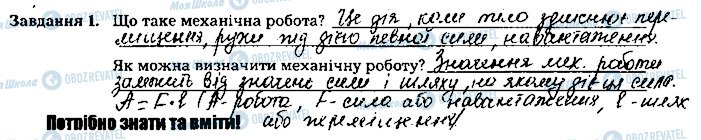 Завдання 1. Що таке механічна робота? Це дія, коли тіло здійснює пере-
міщення, рухи під дією певної сили, навантаження.
Як можна визначити механічну роботу? Значення мех. работи
залежить від значене сили і шляху, на якому діє ця сила.
A = F·l (A - робота, F - сила або навантаження, l - шлях
Потрібно знати та вміти! або переміщення)